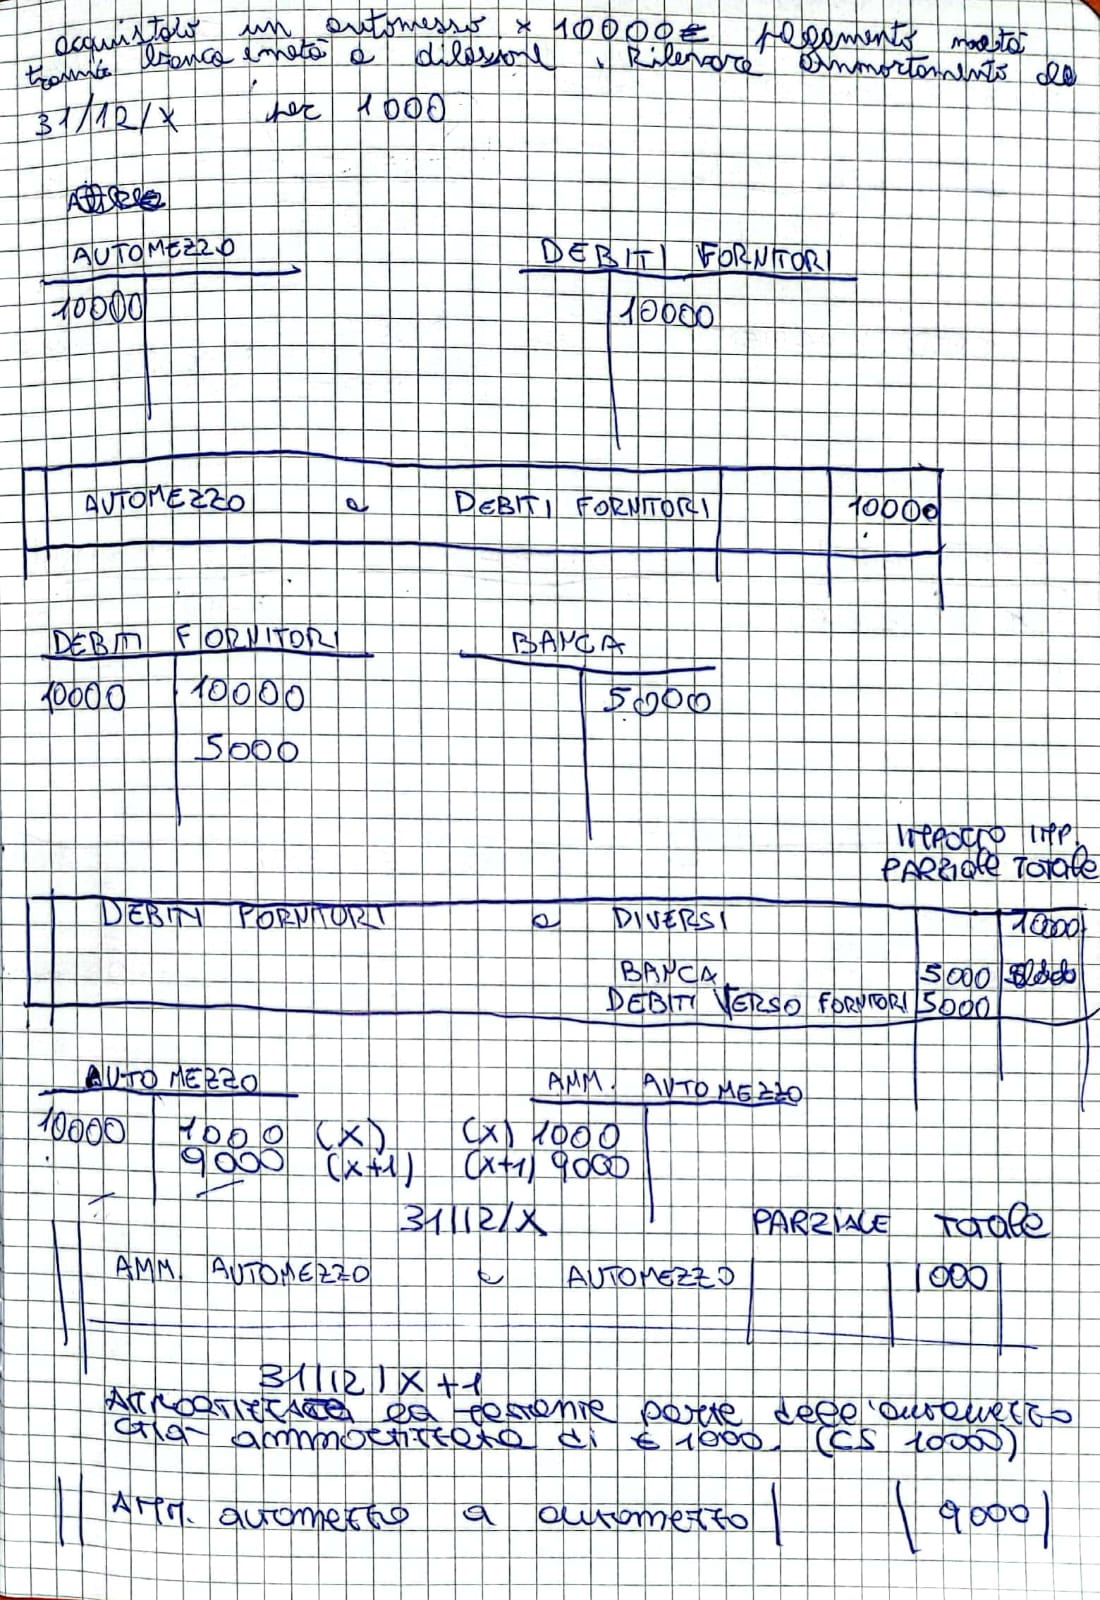 acquistato un automezzo x 10000€ pagamento metà
tramite banca e metà a dilazione. Rilevare ammortamento al
31/12/X per 1000
AUTOMEZZO DEBITI FORNITORI
10000 10000
AUTOMEZZO a DEBITI FORNITORI 10000
DEBITI FORNITORI BANCA
10000 10000 5000
5000
IMPORTO IMP.
PARZIALE TOTALE
DEBITI FORNITORI a DIVERSI 10000
BANCA 5000
DEBITI VERSO FORNITORI 5000
AUTOMEZZO AMM. AUTOMEZZO
10000 1000 (X) (X) 1000
9000 (X+1) (X+1) 9000
31/12/X PARZIALE TOTALE
AMM. AUTOMEZZO a AUTOMEZZO 1000
31/12/X+1
la restante parte dell'automezzo
già ammortizzato di € 1000. (CS 10000)
AMM. automezzo a automezzo 9000